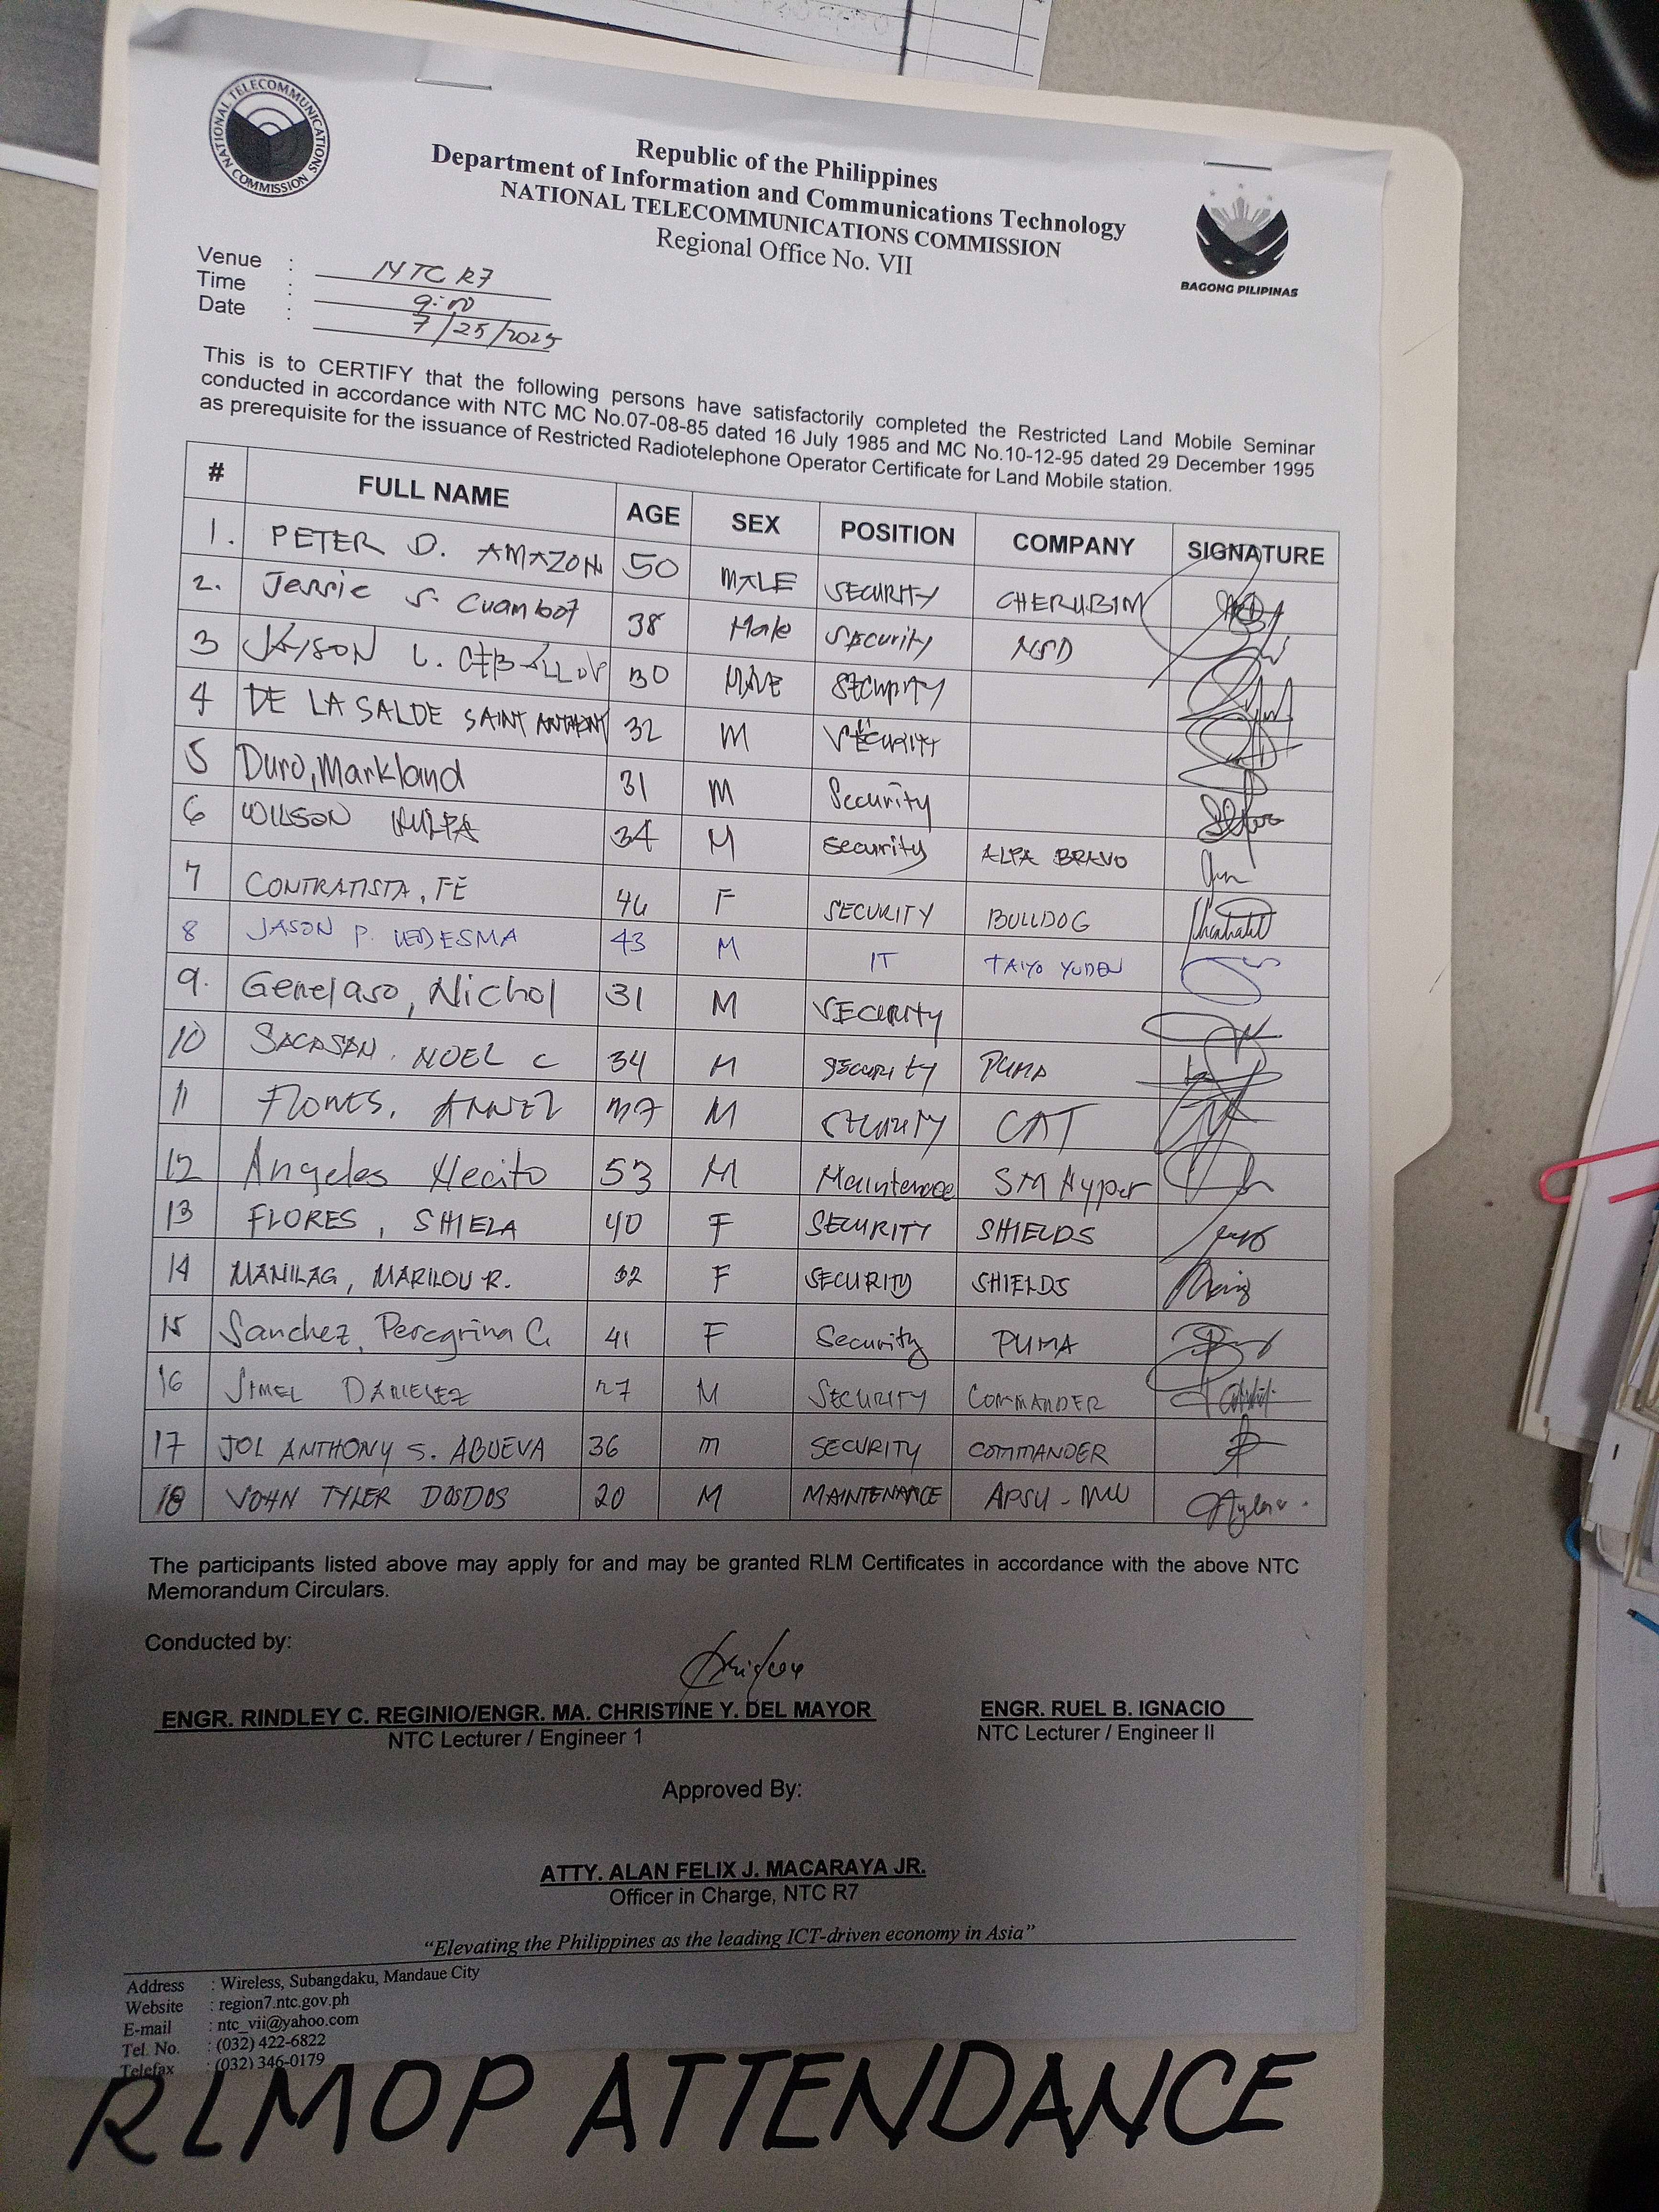 NATIONAL TELECOMMUNICATIONS COMMISSION
Republic of the Philippines
Department of Information and Communications Technology
NATIONAL TELECOMMUNICATIONS COMMISSION
Regional Office No. VII
BAGONG PILIPINAS
Venue : NTC R7
Time : 9:00
Date : 7/25/2025
This is to CERTIFY that the following persons have satisfactorily completed the Restricted Land Mobile Seminar
conducted in accordance with NTC MC No.07-08-85 dated 16 July 1985 and MC No.10-12-95 dated 29 December 1995
as prerequisite for the issuance of Restricted Radiotelephone Operator Certificate for Land Mobile station.
# FULL NAME AGE SEX POSITION COMPANY SIGNATURE
1. PETER D. AMAZON 50 MALE SECURITY CHERUBIM
2. Jessie S. Cuambot 38 Male Security NSD
3 JAYSON L. CEBALLOS 30 MALE SECURITY
4 DE LA SALDE SAINT ANTHONY 32 M SECURITY
5 Duro, Markland 31 M Security
6 WILSON 34 M Security ALPA BRAVO
7 CONTRATISTA, FE 46 F SECURITY BULLDOG
8 JASON P. LEDESMA 43 M IT TAIYO YUDEN
9. Genelaso, Nichol 31 M SECURITY
10 SACASAN, NOEL C 34 M SECURITY PUMA
11 FLORES, 37 M SECURITY CAT
12 Angeles Hecito 53 M Maintenace SM Hyper
13 FLORES, SHIELA 40 F SECURITY SHIELDS
14 MANILAG, MARILOU R. 32 F SECURITY SHIELDS
15 Sanchez, Peregrina C. 41 F Security PUMA
16 JIMEL DANIELEZ 27 M SECURITY COMMANDER
17 JOL ANTHONY S. ABUEVA 36 m SECURITY COMMANDER
18 VOHN TYLER DOSDOS 20 M MAINTENANCE
The participants listed above may apply for and may be granted RLM Certificates in accordance with the above NTC
Memorandum Circulars.
Conducted by:
ENGR. RINDLEY C. REGINIO/ENGR. MA. CHRISTINE Y. DEL MAYOR ENGR. RUEL B. IGNACIO
NTC Lecturer / Engineer 1 NTC Lecturer / Engineer II
Approved By:
ATTY. ALAN FELIX J. MACARAYA JR.
Officer in Charge, NTC R7
“Elevating the Philippines as the leading ICT-driven economy in Asia”
Address : Wireless, Subangdaku, Mandaue City
Website : region7.ntc.gov.ph
E-mail : ntc_vii@yahoo.com
Tel. No. : (032) 422-6822
Telefax : (032) 346-0179
RLMOP ATTENDANCE